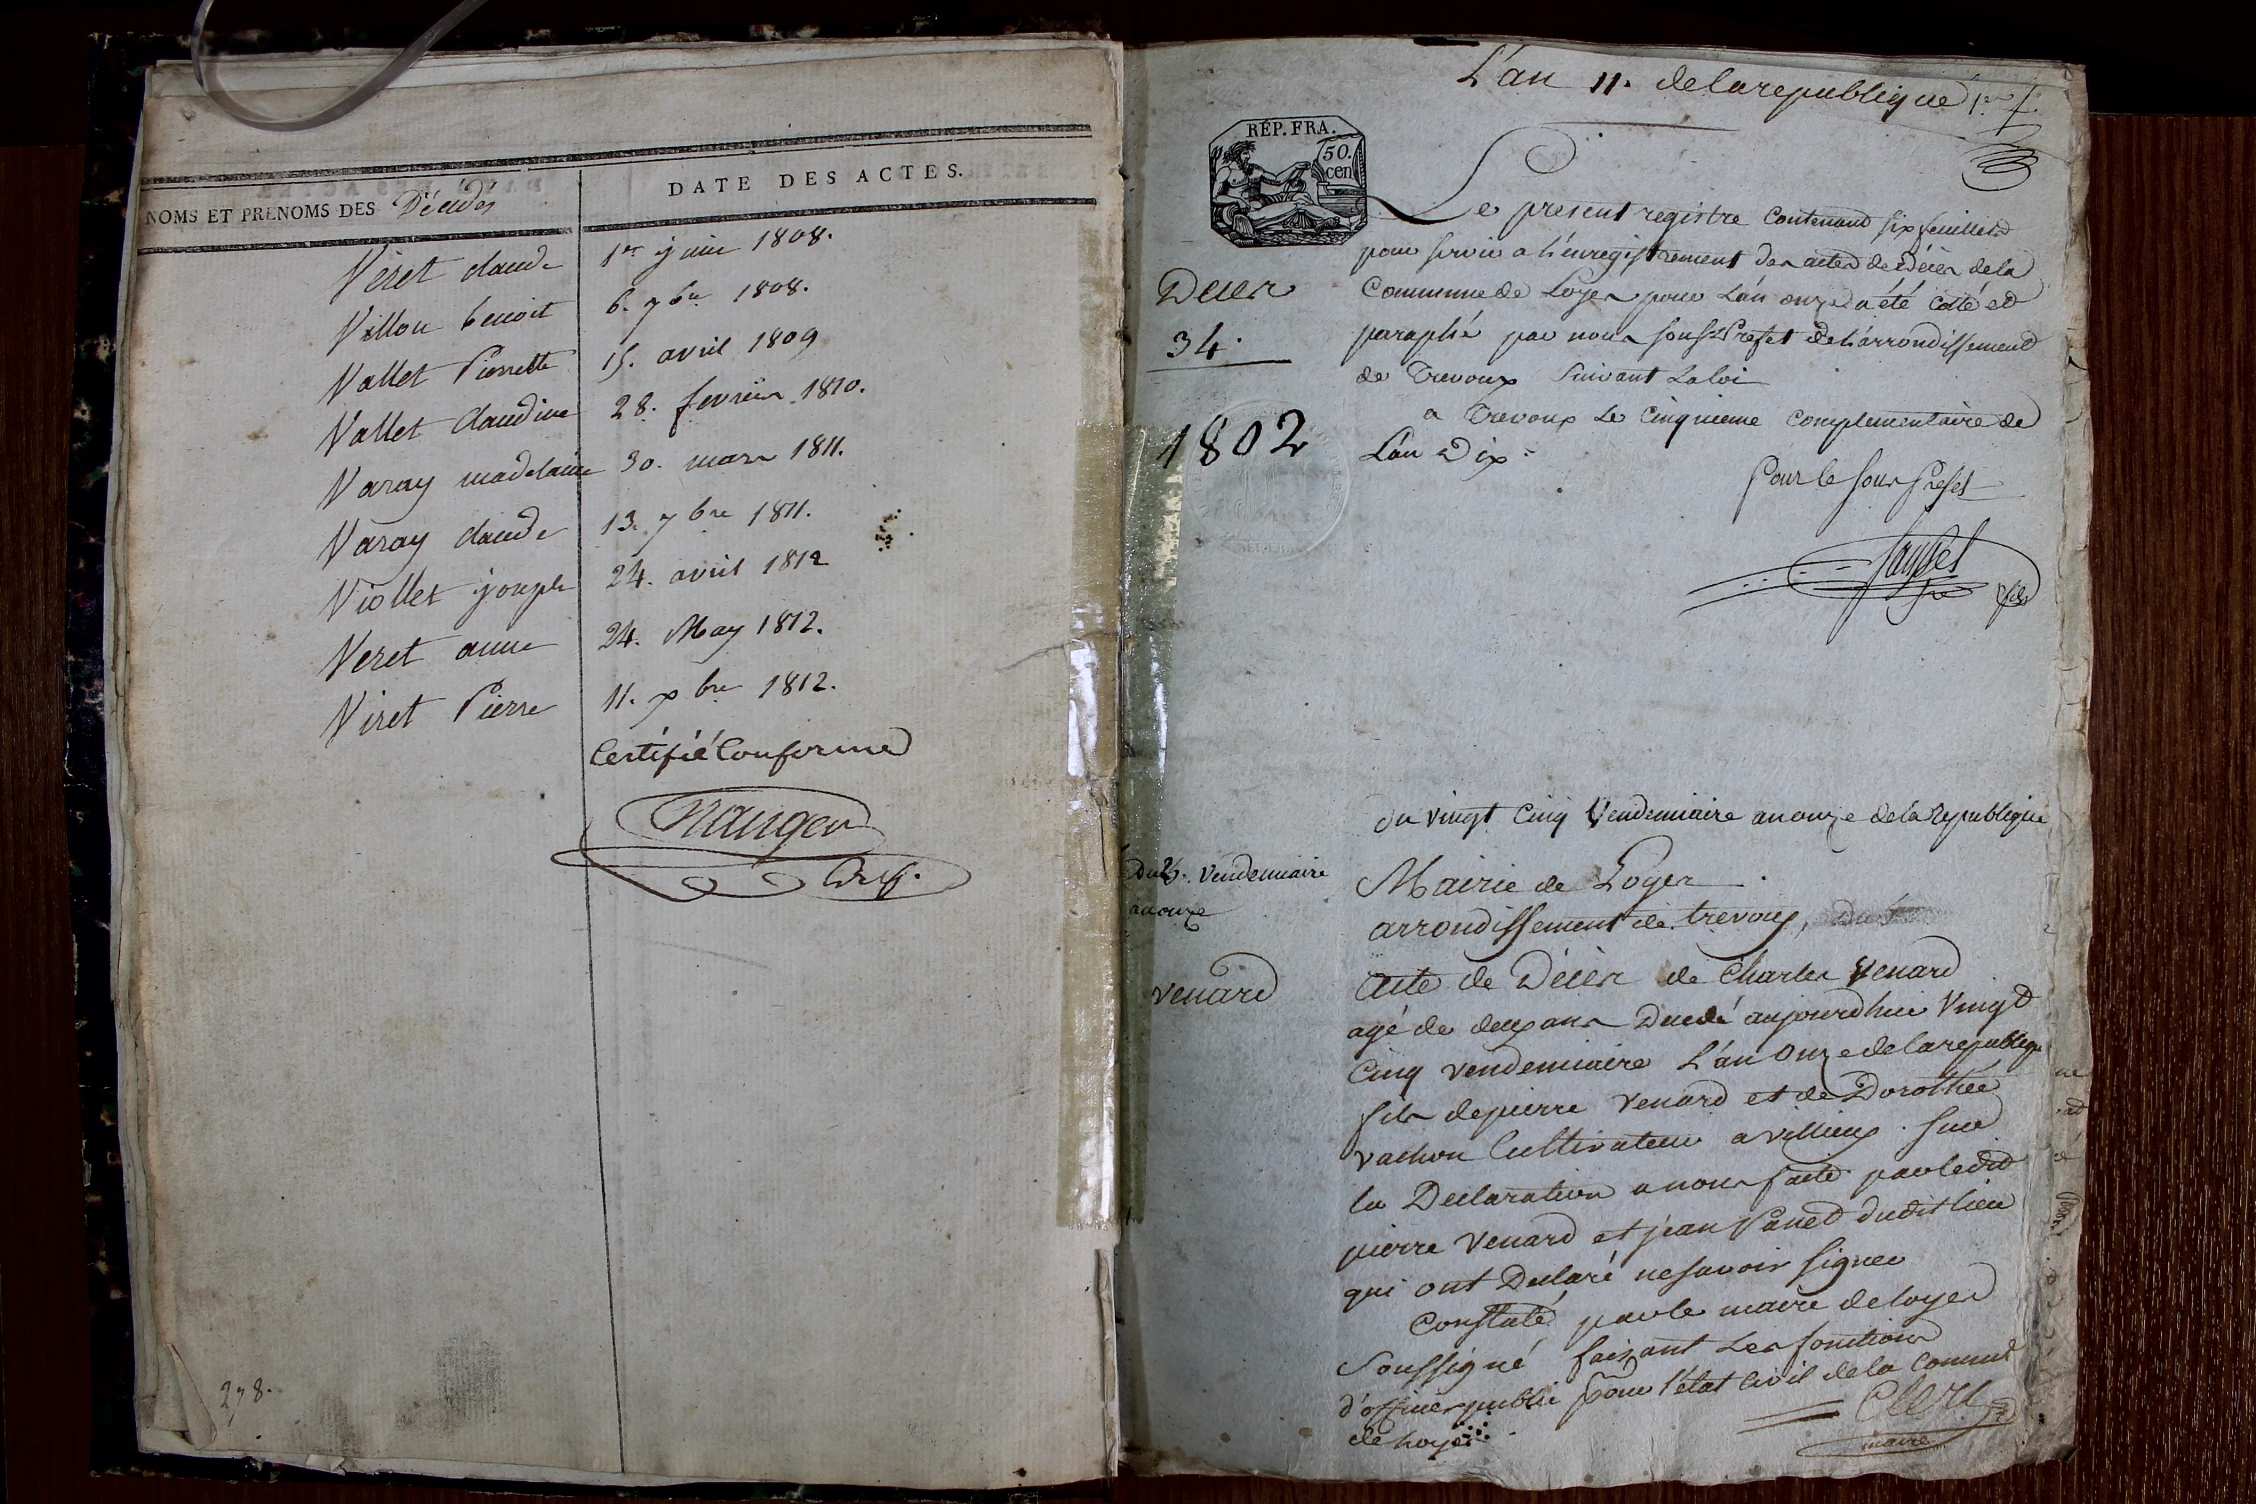 NOMS ET PRENOMS DES Décédés
DATE DES ACTES.
Veret claude 1er juin 1808.
Villon benoit 6. 7bre 1808.
Vallet Pierrette 15. avril 1809
Vallet Claudine 28. fevrier 1810.
Varay madelaine 30. mars 1811.
Varay claude 13. 7bre 1811.
Viollet joseph 24. avril 1812
Veret anne 24. May 1812.
Viret Pierre 11. xbre 1812.
Certifié Conforme
278.
L'an 11. de la republique 1er f.
RÉP. FRA.
50.
cen
Le present registre contenant six feuillets
pour servir a l'enregistrement des actes de décès de la
Commune de Loyes pour l'an onze a été cotté et
paraphé par nous sous Prefet de l'arrondissement
de Trevoux suivant la loi
a Trevoux le cinquieme complementaire de
L'an Dix
Pour le sous Prefet
Deces
34.
1802
du vingt cinq Vendemiaire an onze de la republique
du 25. Vendemiaire
an onze
Venard
Mairie de Loyes
arrondissement de trevoux,
acte de Décès de Charles Venard
agé de deux ans Decedé aujourdhui Vingt
Cinq vendemiaire L'an Onze de la republique
fils de pierre Venard et de Dorothée
vachon Cultivateur a villieux. Sur
la Declaration a nous faite par ledit
pierre Venard et jean Panet dudit lieu
qui ont Declaré ne savoir signer
Constaté par le maire de loyes
Soussigné faisant les fonctions
d'officier public pour l'état civil de la commune
de Loyes
Clerc
maire